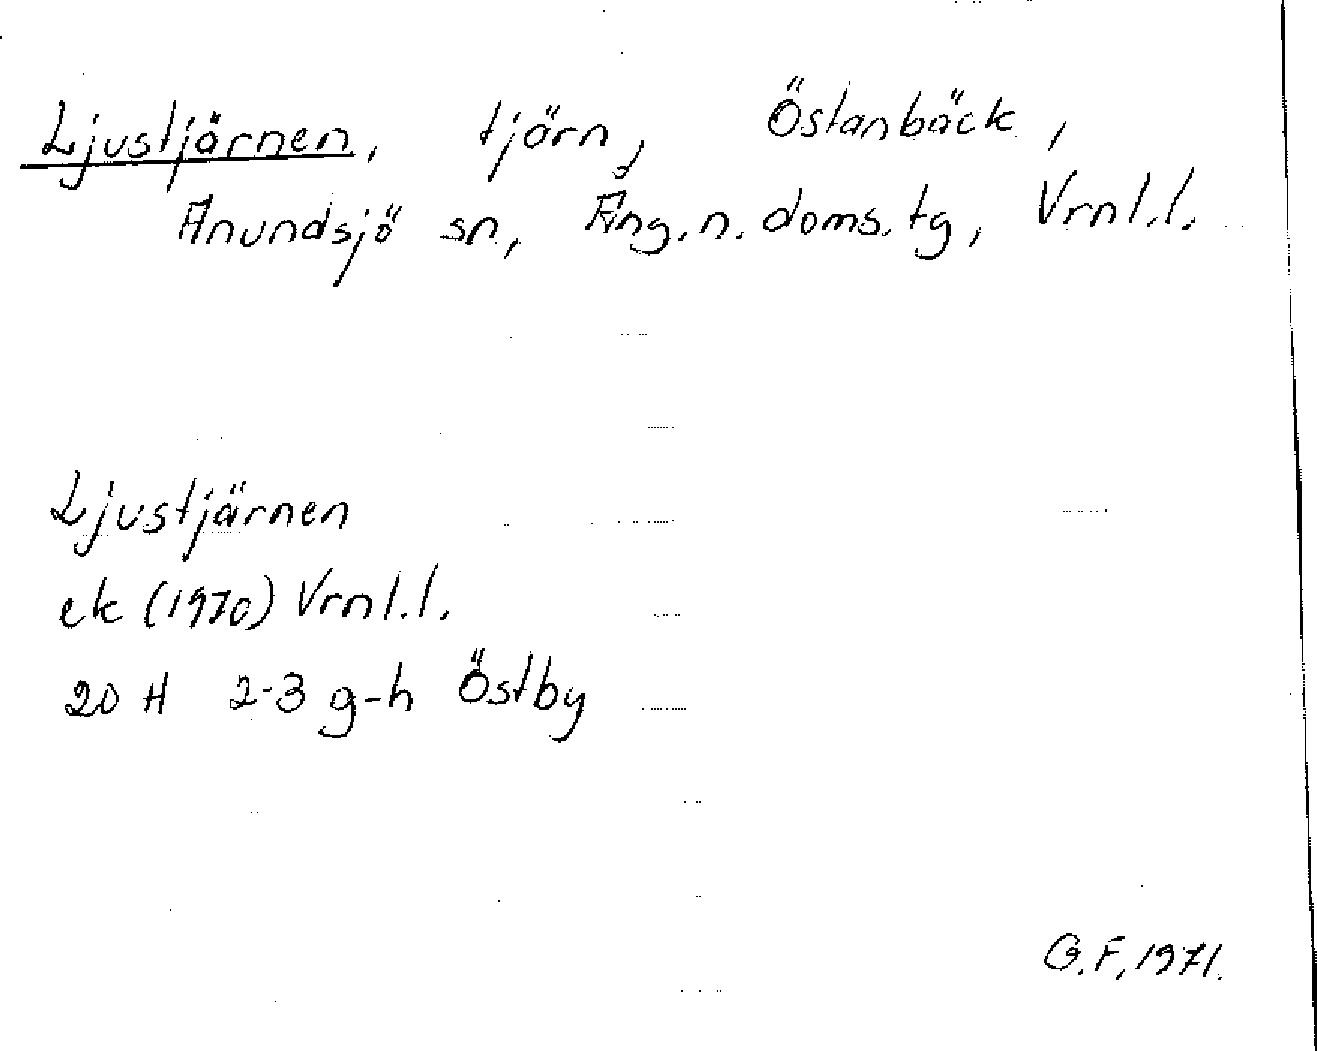 Ljustjärnen, tjärn, Östanbäck,
Anundsjö sn, Ång.n.doms.tg, Vrnl.l.
Ljustjärnen
ek (1970) Vrnl.l.
20 H 2-3 g-h Östby
G.F, 1971.